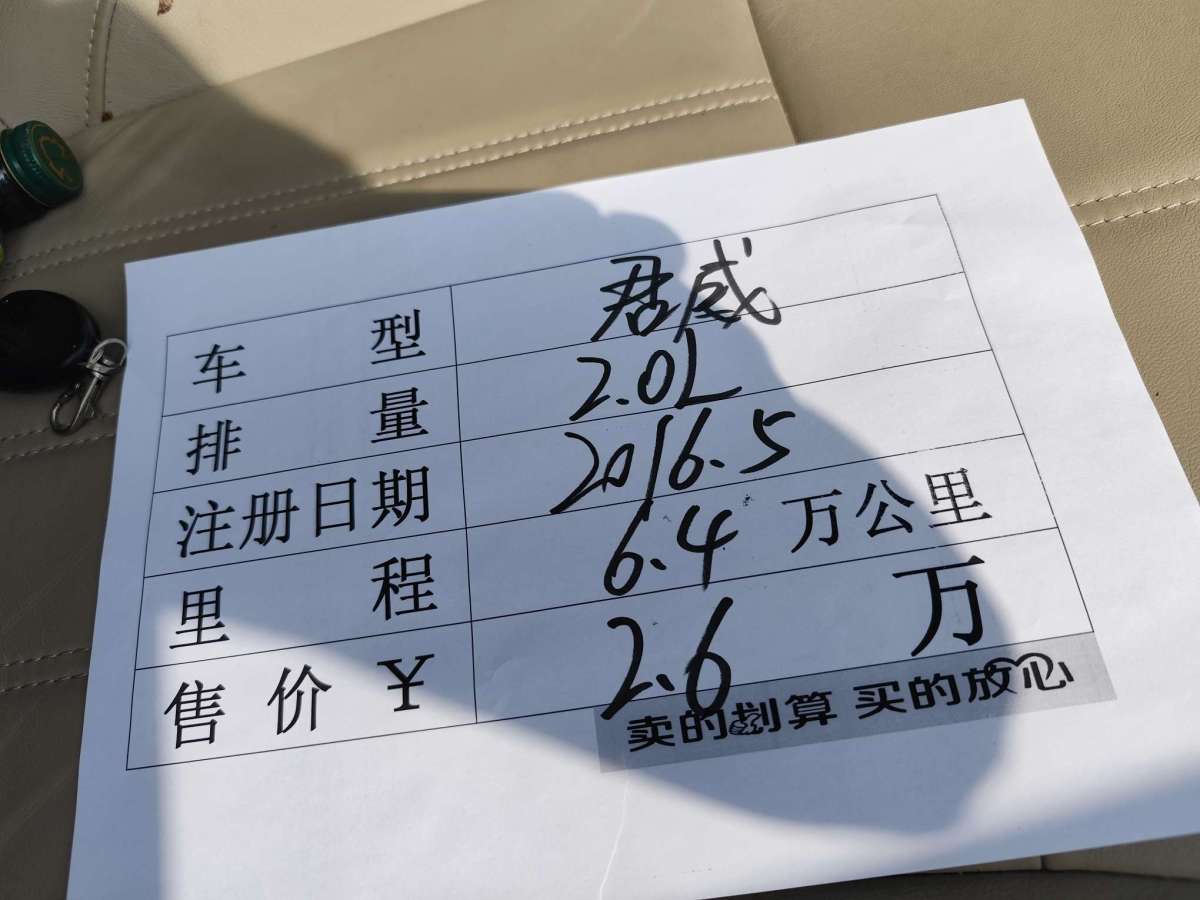 车型 君威
排量 2.0L
注册日期 2016.5
里程 6.4 万公里
售价¥ 2.6 万
卖的划算 买的放心